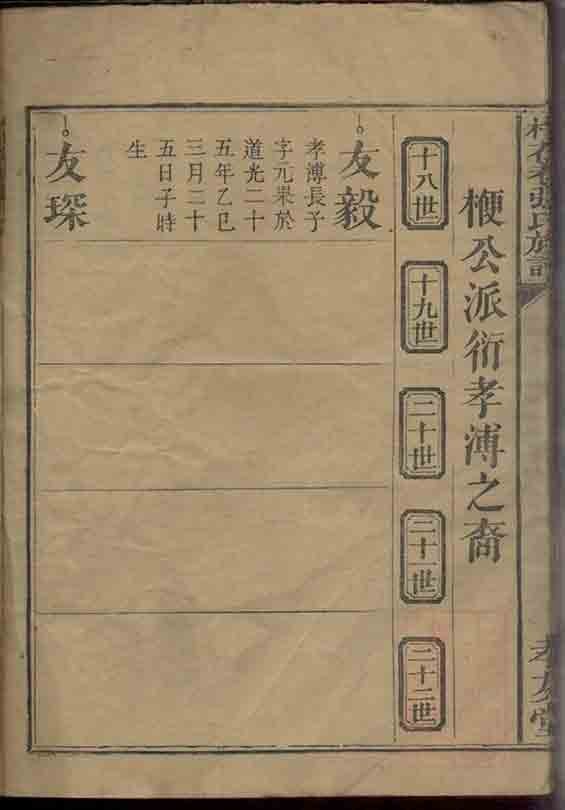 張氏族譜
孝友堂
楩公派衍孝溥之裔
十八世
十九世
二十世
二十一世
二十二世
友毅
孝溥長子
字元杲於
道光二十
五年乙巳
三月二十
五日子時
生
友琛